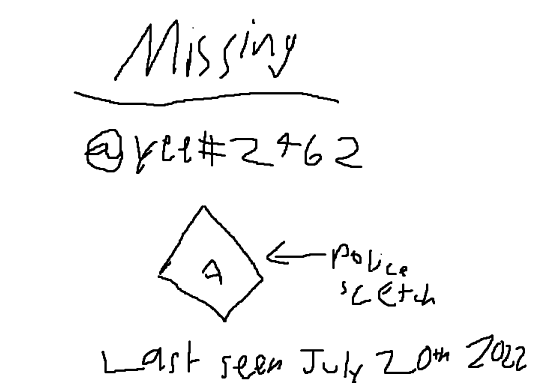 Missing
@yee#2462
4
police
scetch
Last seen July 20th 2022